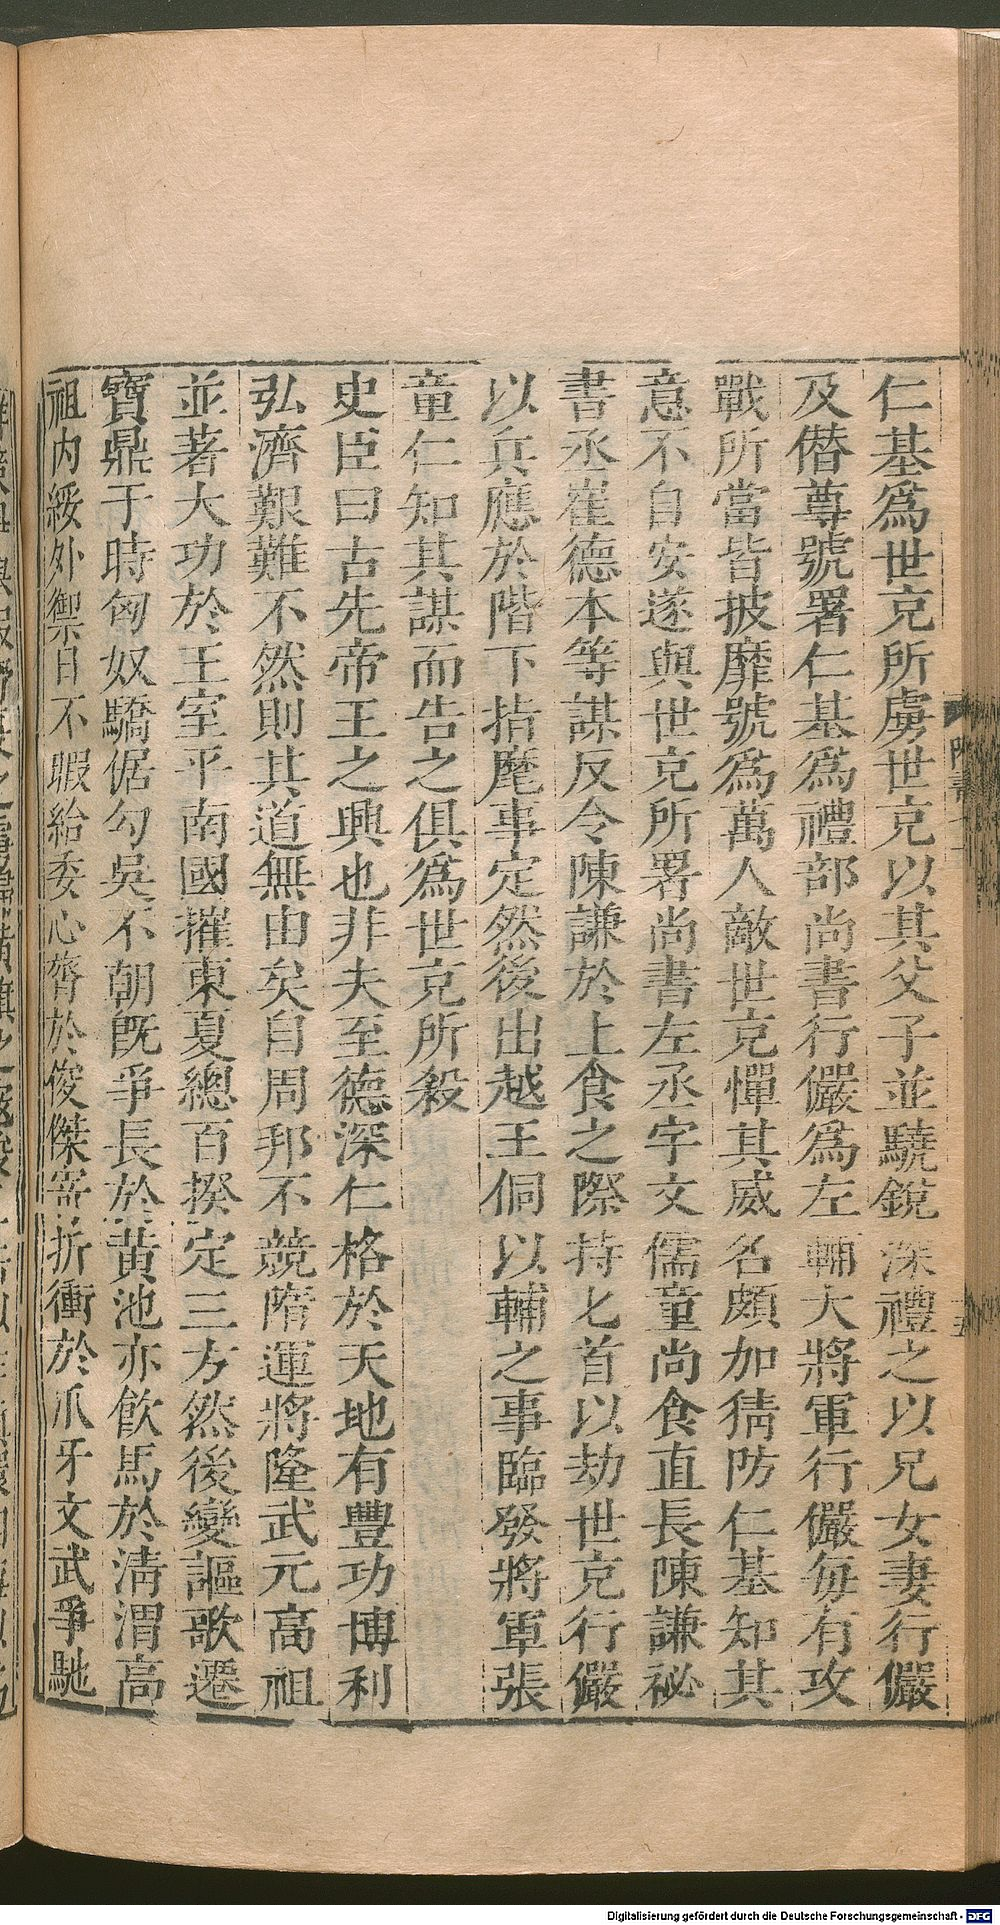 仁基爲世充所虜世充以其父子並驍銳深禮之以兄女妻行儼
及僣尊號署仁基爲禮部尚書行儼爲左輔大將軍行儼毎有攻
戰所當皆披靡號爲萬人敵世充憚其威名頗加猜防仁基知其
意不自安遂與世充所署尚書左丞宇文儒童尚食直長陳謙祕
書丞崔德本等謀反令陳謙於上食之際持匕首以劫世充行儼
以兵應於階下指麾事定然後出越王侗以輔之事臨發將軍張
童仁知其謀而告之俱爲世充所殺
史臣曰古先帝王之興也非夫至德深仁格於天地有豐功博利
弘濟艱難不然則其道無由矣自周邦不競隋運將隆武元高祖
並著大功於王室平南國摧東夏總百揆定三方然後變謳歌遷
寶鼎于時匈奴驕倨勾吳不朝旣爭長於黃池亦飮馬於淸渭高
祖內綏外禦日不暇給委心膂於俊傑寄折衝於爪牙文武爭馳
Digitalisierung gefördert durch die Deutsche Forschungsgemeinschaft - DFG